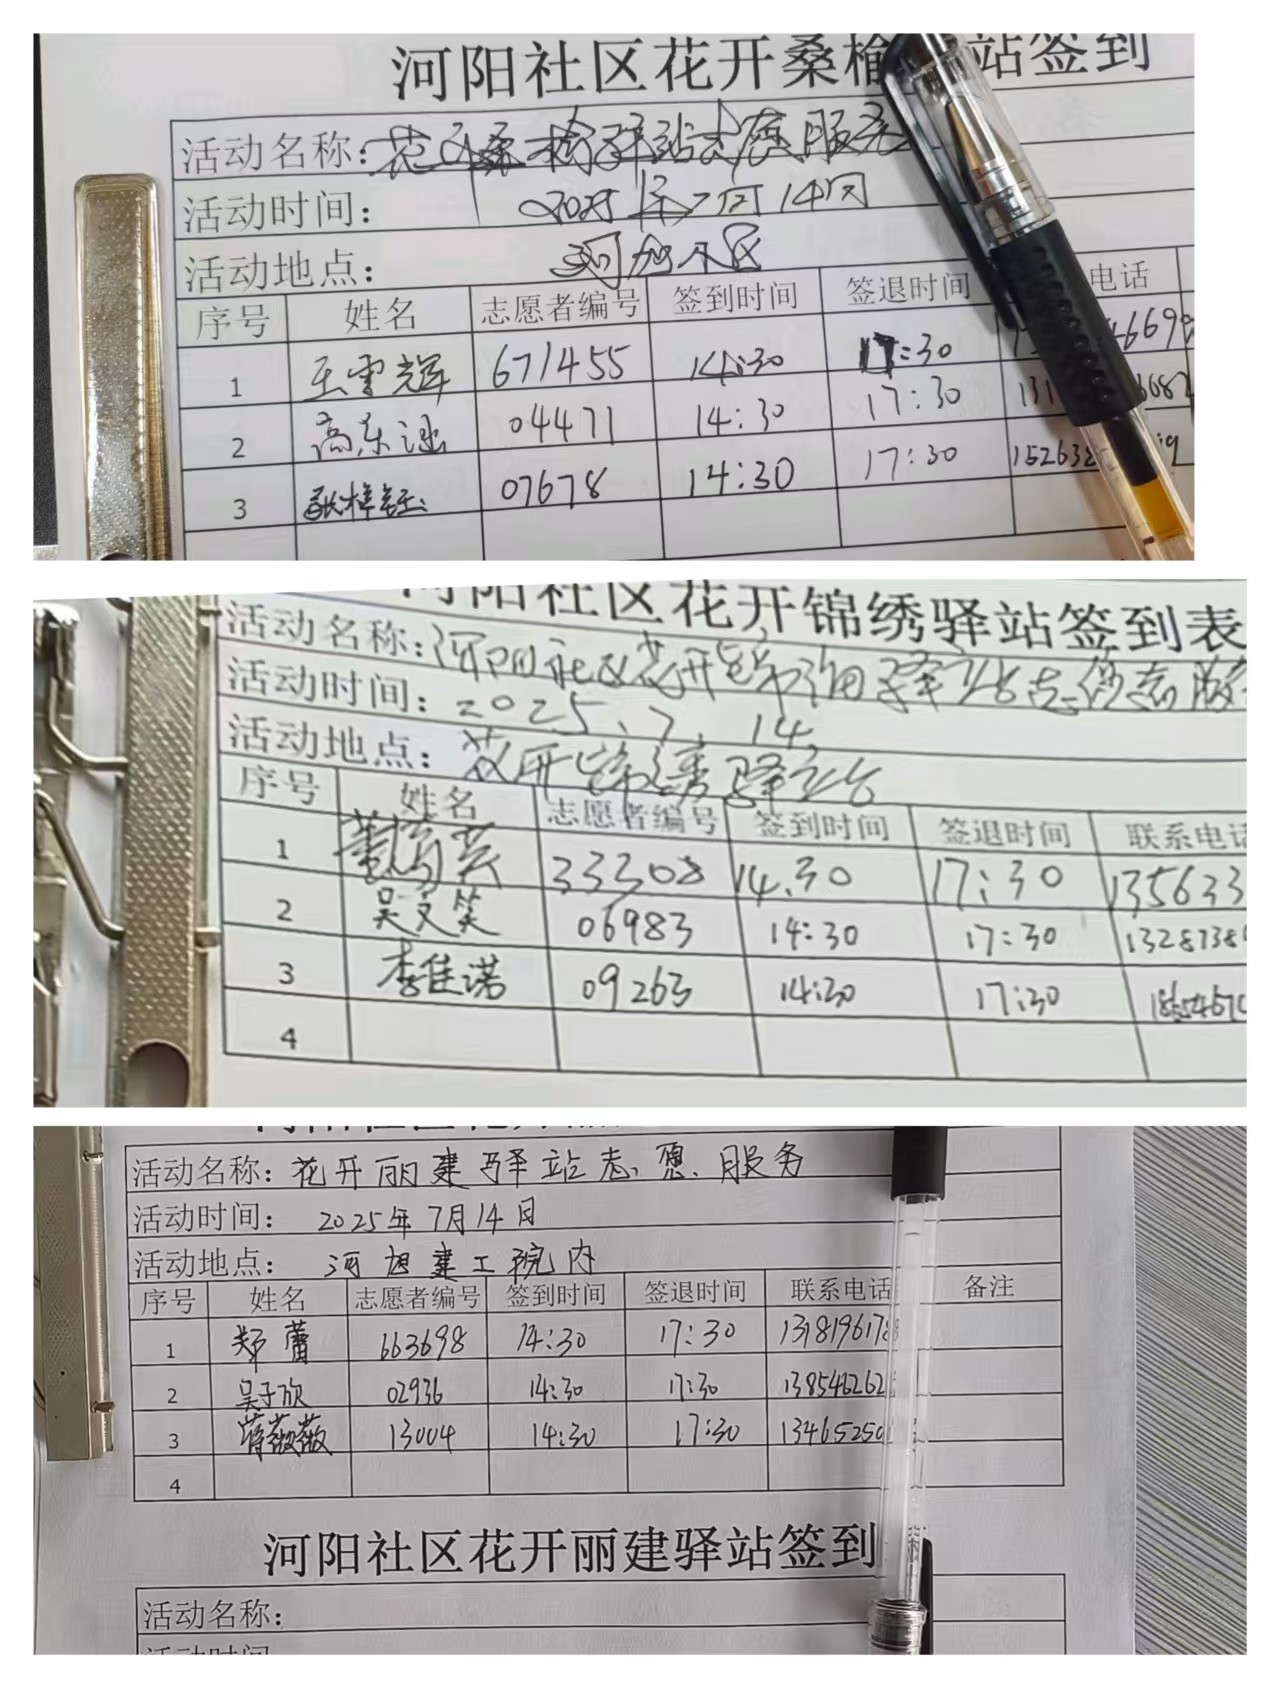 河阳社区花开桑榆 站签到
活动名称:花开桑榆驿站志愿服务
活动时间: 2025年7月14日
活动地点: 小区
序号 姓名 志愿者编号 签到时间 签退时间 电话
1 王雪辉 671455 14:30 17:30 4669
2 高东 04471 14:30 17:30 131 6087
3 07678 14:30 17:30 152632 9
河阳社区花开锦绣驿站签到表
活动名称:河阳社区花开锦绣驿站志愿者服
活动时间: 2025、7、14
活动地点: 花开锦绣驿站
序号 姓名 志愿者编号 签到时间 签退时间 联系电话
1 董 英 33308 14.30 17:30 135633
2 吴文笑 06983 14:30 17:30 1328738
3 李佳诺 09263 14:30 17:30
4
活动名称: 花开丽建驿站志愿服务
活动时间: 2025年7月14日
活动地点: 河旭建工院内
序号 姓名 志愿者编号 签到时间 签退时间 联系电话 备注
1 郑蕾 663698 14:30 17:30 1318196178
2 吴子欣 02936 14:30 17:30 138546262
3 蒋薇薇 13004 14:30 17:30 13465250
4
河阳社区花开丽建驿站签到
活动名称:
活动时间: